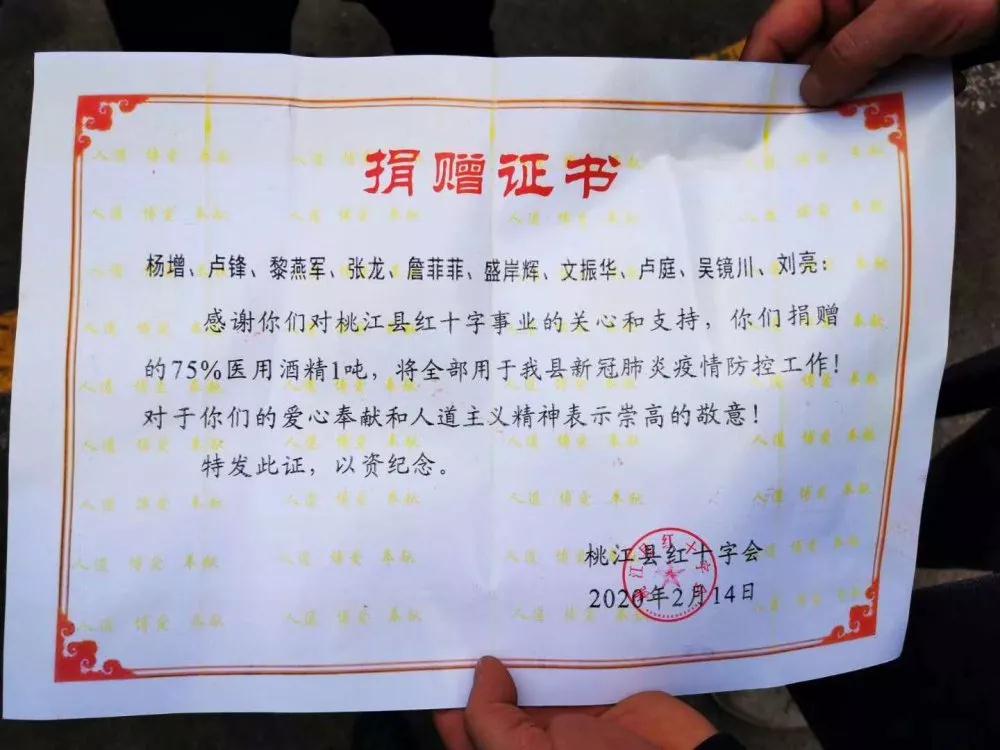 捐赠证书
杨增、卢锋、黎燕军、张龙、詹菲菲、盛岸辉、文振华、卢庭、吴镜川、刘亮：
感谢你们对桃江县红十字事业的关心和支持，你们捐赠
的75%医用酒精1吨，将全部用于我县新冠肺炎疫情防控工作！
对于你们的爱心奉献和人道主义精神表示崇高的敬意！
特发此证，以资纪念。
桃江县红十字会
2020年2月14日
人道 博爱 奉献